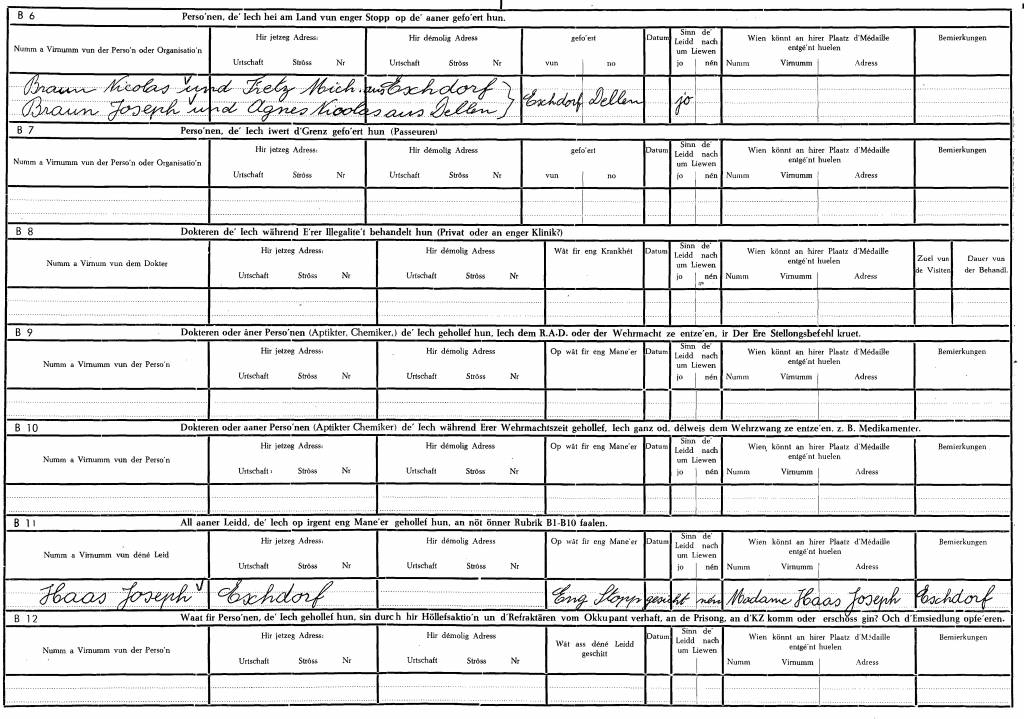 B 6 Perso'nen, de' Iech hei am Land vun enger Stopp op de' aaner gefo'ert hun.
Numm a Virnumm vun der Perso'n oder Organisatio'n Hir jetzeg Adress: Hir démolig Adress gefo'ert Datum Sinn de' Leidd nach um Liewen Wien könnt an hirer Plaatz d'Médaille entgé'nt huelen Bemierkungen
Urtschaft Ströss Nr Urtschaft Ströss Nr vun no jo nén Numm Virnumm Adress
Braun Nicolas v und Fretz Mich. aus Eschdorf } Eschdorf Dellen jo
Braun Joseph v und Agnes Nicolas aus Dellen
B 7 Perso'nen, de' Iech iwert d'Grenz gefo'ert hun (Passeuren)
Numm a Virnumm vun der Perso'n oder Organisatio'n Hir jetzeg Adress: Hir démolig Adress gefo'ert Datum Sinn de' Leidd nach um Liewen Wien könnt an hirer Plaatz d'Médaille entgé'nt huelen Bemierkungen
Urtschaft Ströss Nr Urtschaft Ströss Nr vun no jo nén Numm Virnumm Adress
B 8 Dokteren de' Iech während E'rer Illegalite't behandelt hun (Privat oder an enger Klinik?)
Numm a Virnum vun dem Dokter Hir jetzeg Adress: Hir démolig Adress Wät fir eng Krankhét Datum Sinn de' Leidd nach um Liewen Wien könnt an hirer Plaatz d'Médaille entgé'nt huelen Zuel vun de Visiten Dauer vun der Behandl.
Urtschaft Ströss Nr Urtschaft Ströss Nr jo nén Numm Virnumm Adress
B 9 Dokteren oder äner Perso'nen (Aptikter, Chemiker,) de' Iech gehollef hun, Iech dem R.A.D. oder der Wehrmacht ze entze'en, ir Der Ere Stellongsbefehl kruet.
Numm a Virnumm vun der Perso'n Hir jetzeg Adress: Hir démolig Adress Op wät fir eng Mane'er Datum Sinn de' Leidd nach um Liewen Wien könnt an hirer Plaatz d'Médaille entgé'nt huelen Bemierkungen
Urtschaft Ströss Nr Urtschaft Ströss Nr jo nén Numm Virnumm Adress
B 10 Dokteren oder aaner Perso'nen (Aptikter Chemiker) de' Iech während Erer Wehrmachtszeit gehollef, Iech ganz od. délweis dem Wehrzwang ze entze'en. z. B. Medikamenter.
Numm a Virnumm vun der Perso'n Hir jetzeg Adress: Hir démolig Adress Op wät fir eng Mane'er Datum Sinn de' Leidd nach um Liewen Wien könnt an hirer Plaatz d'Médaille entgé'nt huelen Bemierkungen
Urtschaft Ströss Nr Urtschaft Ströss Nr jo nén Numm Virnumm Adress
B 11 All aaner Leidd, de' Iech op irgent eng Mane'er gehollef hun, an nöt önner Rubrik B1-B10 faalen.
Numm a Virnumm vun déné Leid Hir jetzeg Adress: Hir démolig Adress Op wät fir eng Mane'er Datum Sinn de' Leidd nach um Liewen Wien könnt an hirer Plaatz d'Médaille entgé'nt huelen Bemierkungen
Urtschaft Ströss Nr Urtschaft Ströss Nr jo nén Numm Virnumm Adress
Haas Joseph v Eschdorf Eng Stopp gesicht nén Madame Haas Joseph Eschdorf
B 12 Waat fir Perso'nen, de' Iech gehollef hun, sin durch hir Höllefsaktio'n un d'Refraktären vom Okkupant verhaft, an de Prisong, an d'KZ komm oder erschöss gin? Och d'Emsiedlung opfe'eren.
Numm a Virnumm vun der Perso'n Hir jetzeg Adress: Hir démolig Adress Wät ass déné Leidd geschitt Datum Sinn de' Leidd nach um Liewen Wien könnt an hirer Plaatz d'Médaille entgé'nt huelen Bemierkungen
Urtschaft Ströss Nr Urtschaft Ströss Nr jo nén Numm Virnumm Adress